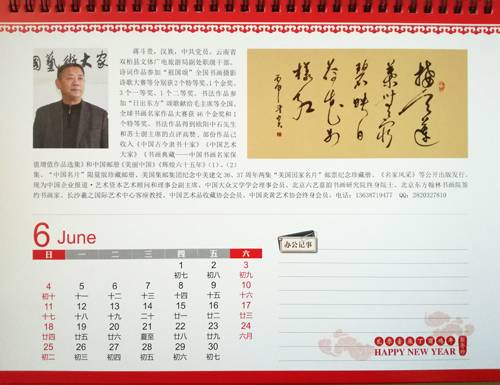 国艺术大家
蒋斗贵，汉族，中共党员，云南省
双柏县文体广电旅游局副处职级干部。
诗词作品参加“祖国颂”全国书画摄影
诗歌大赛等分别获2个特等奖，1个金奖，
3个一等奖，1个二等奖。书法作品参
加“日出东方”颂歌献给毛主席等全国、
全球书画名家作品大赛获46个金奖和1
个特等奖。书法作品得到欧阳中石先生
和苏士澍主席的点评高赞。部份作品已
收入《中国古今隶书十家》《中国艺术
大家》《书画典藏——中国书画名家保
值增值作品选集》和中国邮册《美丽中国》《辉煌六十五年》(1)、(2)
集、“中国名片”限量版珍藏邮册、美国集邮集团纪念中美建交36、37周年两集“美国国家名片”邮票纪念珍藏册、《名家风采》等公开出版发行。
现为中国企业报道·艺术资本艺术顾问和理事会副主席、中国大众文学学会理事会员、北京六艺嘉韵书画研究院终身院士、北京东方翰林书画院签
约书画家、长沙羲之国际艺术中心客座教授、中国艺术品收藏协会会员、中国炎黄艺术协会终身会员。电话：13638719477 QQ：2820327810
接天莲
叶无穷
碧映日
荷花别
样红
6 June
日 一 二 三 四 五 六
1 2 3
初七 初八 初九
4 5 6 7 8 9 10
初十 十一 十二 十三 十四 十五 十六
11 12 13 14 15 16 17
十七 十八 十九 二十 廿一 廿二 廿三
18 19 20 21 22 23 24
廿四 廿五 廿六 夏至 廿八 廿九 六月
25 26 27 28 29 30
初二 初三 初四 初五 初六 初七
办公记事
HAPPY NEW YEAR